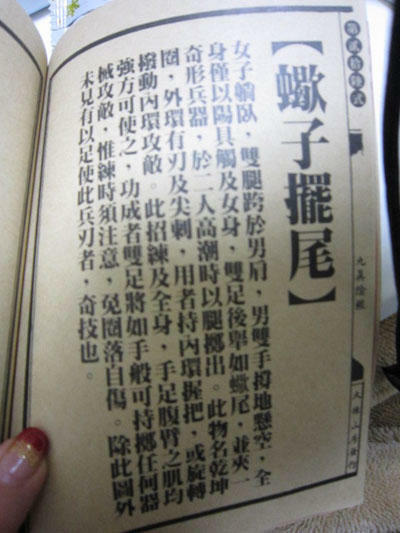 第貳拾肆式
九真陰經
【蠍子擺尾】
女子躺臥，雙腿跨於男肩，男雙手撐地懸空，全
身僅以陽具觸及女身，雙足後舉如蠍尾，並夾一
奇形兵器，於二人高潮時以腿擲出。此物名乾坤
圈，外環有刃及尖刺，用者持內環握把，或旋轉
撥動內環攻敵。此招練及全身，手足腹臂之肌均
強方可使之，功成者雙足將如手般可持擲任何器
械攻敵，惟練時須注意，免圈落自傷。除此圖外
未見有以足使此兵刃者，奇技也。